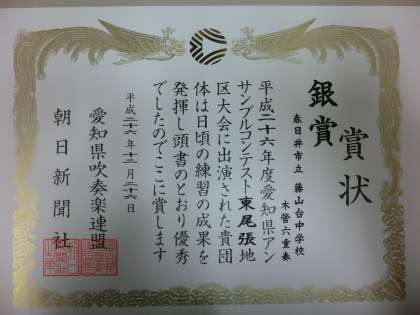 賞状
銀賞
春日井市立 藤山台中学校
木管六重奏
平成二十六年度愛知県アン
サンブルコンテスト東尾張地
区大会に出演された貴団
体は日頃の練習の成果を
発揮し頭書のとおり優秀
でしたのでここに賞します
平成二十六年十二月二十六日
愛知県吹奏楽連盟
朝日新聞社